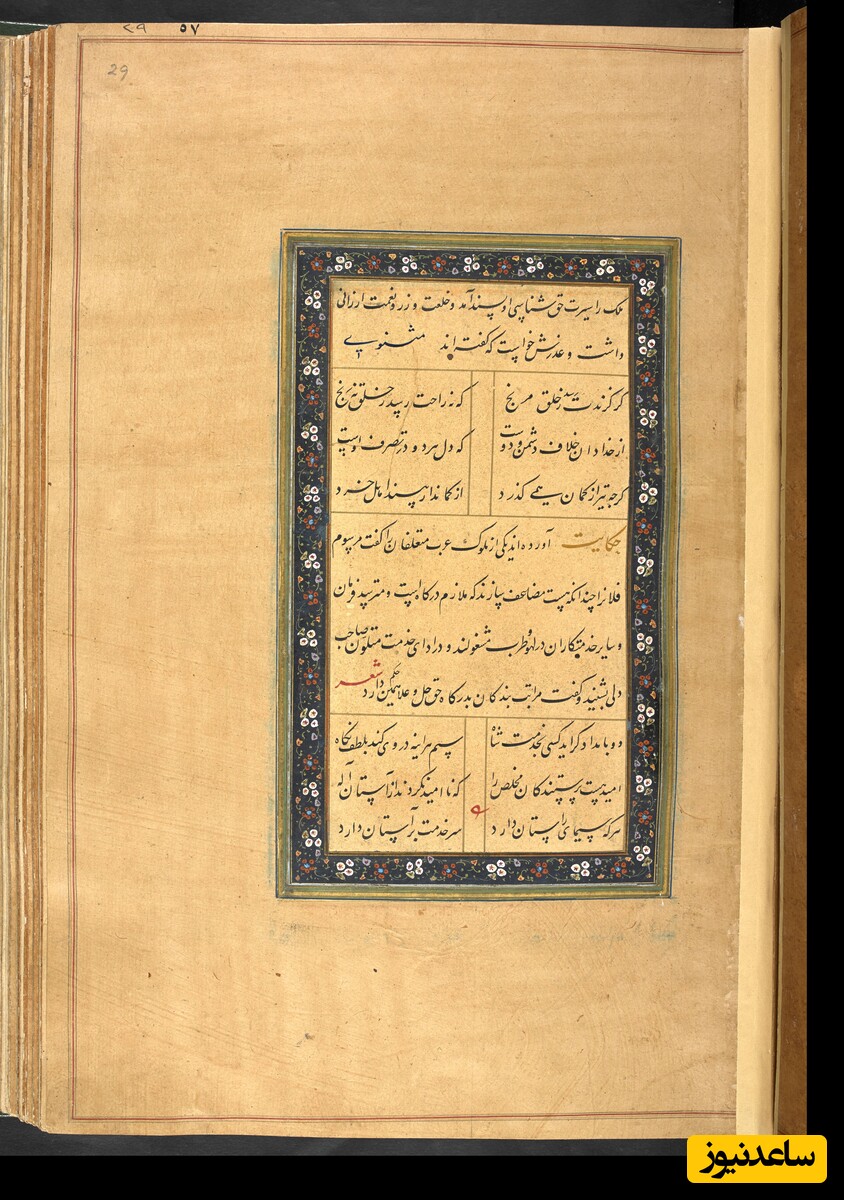 ٢٩ ٥٧
29
ملک را سیرت حق شناسی او پسند آمد و خلعت و زر و نعمت ارزانی
داشت و عذرش خواست که گفته اند مثنوی
گر گزندت رسد ز خلق مرنج که نه راحت رسد ز خلق نه رنج
از خدا دان خلاف دشمن و دوست که دل هر دو در تصرف اوست
گرچه تیر از کمان همی گذرد از کماندار بیند اهل خرد
حکایت آورده اند یکی از ملوک عرب متعلقان را گفت مرسوم
فلانرا چندانکه هست مضاعف سازند که ملازم درگاهست و مترصد فرمان
و سایر خدمتکاران در لهو و طرب مشغولند و در ادای خدمت متهاون صاحب
دلی بشنید و گفت مراتب بندکان بدرکاه حق جل و علا همین حکم دارد شعر
دو بامداد گر آید کسی بخدمت شاه سیم هر اینه در وی کند بلطف نگاه
امید هست پرستندگان مخلص را که نا امید نکردند از آستان اله
هر که سیمای راستان دارد سر خدمت بر آستان دارد
ساعدنیوز